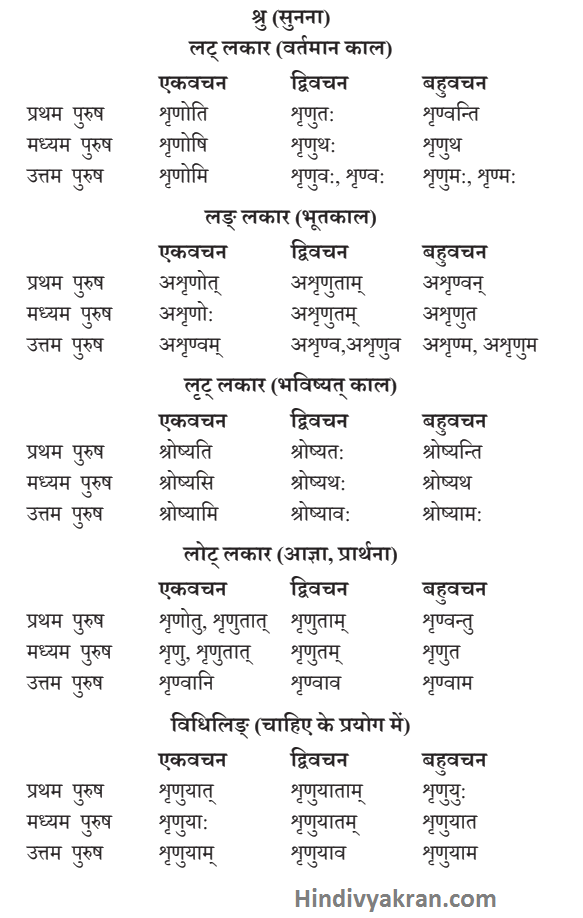 श्रु (सुनना)
लट् लकार (वर्तमान काल)
एकवचन द्विवचन बहुवचन
प्रथम पुरुष शृणोति शृणुत: शृण्वन्ति
मध्यम पुरुष शृणोषि शृणुथ: शृणुथ
उत्तम पुरुष शृणोमि शृणुव:, शृण्व: शृणुम:, शृण्म:
लङ् लकार (भूतकाल)
एकवचन द्विवचन बहुवचन
प्रथम पुरुष अशृणोत् अशृणुताम् अशृण्वन्
मध्यम पुरुष अशृणो: अशृणुतम् अशृणुत
उत्तम पुरुष अशृण्वम् अशृण्व,अशृणुव अशृण्म, अशृणुम
लृट् लकार (भविष्यत् काल)
एकवचन द्विवचन बहुवचन
प्रथम पुरुष श्रोष्यति श्रोष्यत: श्रोष्यन्ति
मध्यम पुरुष श्रोष्यसि श्रोष्यथ: श्रोष्यथ
उत्तम पुरुष श्रोष्यामि श्रोष्याव: श्रोष्याम:
लोट् लकार (आज्ञा, प्रार्थना)
एकवचन द्विवचन बहुवचन
प्रथम पुरुष शृणोतु, शृणुतात् शृणुताम् शृण्वन्तु
मध्यम पुरुष शृणु, शृणुतात् शृणुतम् शृणुत
उत्तम पुरुष शृण्वानि शृण्वाव शृण्वाम
विधिलिङ् (चाहिए के प्रयोग में)
एकवचन द्विवचन बहुवचन
प्रथम पुरुष शृणुयात् शृणुयाताम् शृणुयु:
मध्यम पुरुष शृणुया: शृणुयातम् शृणुयात
उत्तम पुरुष शृणुयाम् शृणुयाव शृणुयाम
Hindivyakran.com